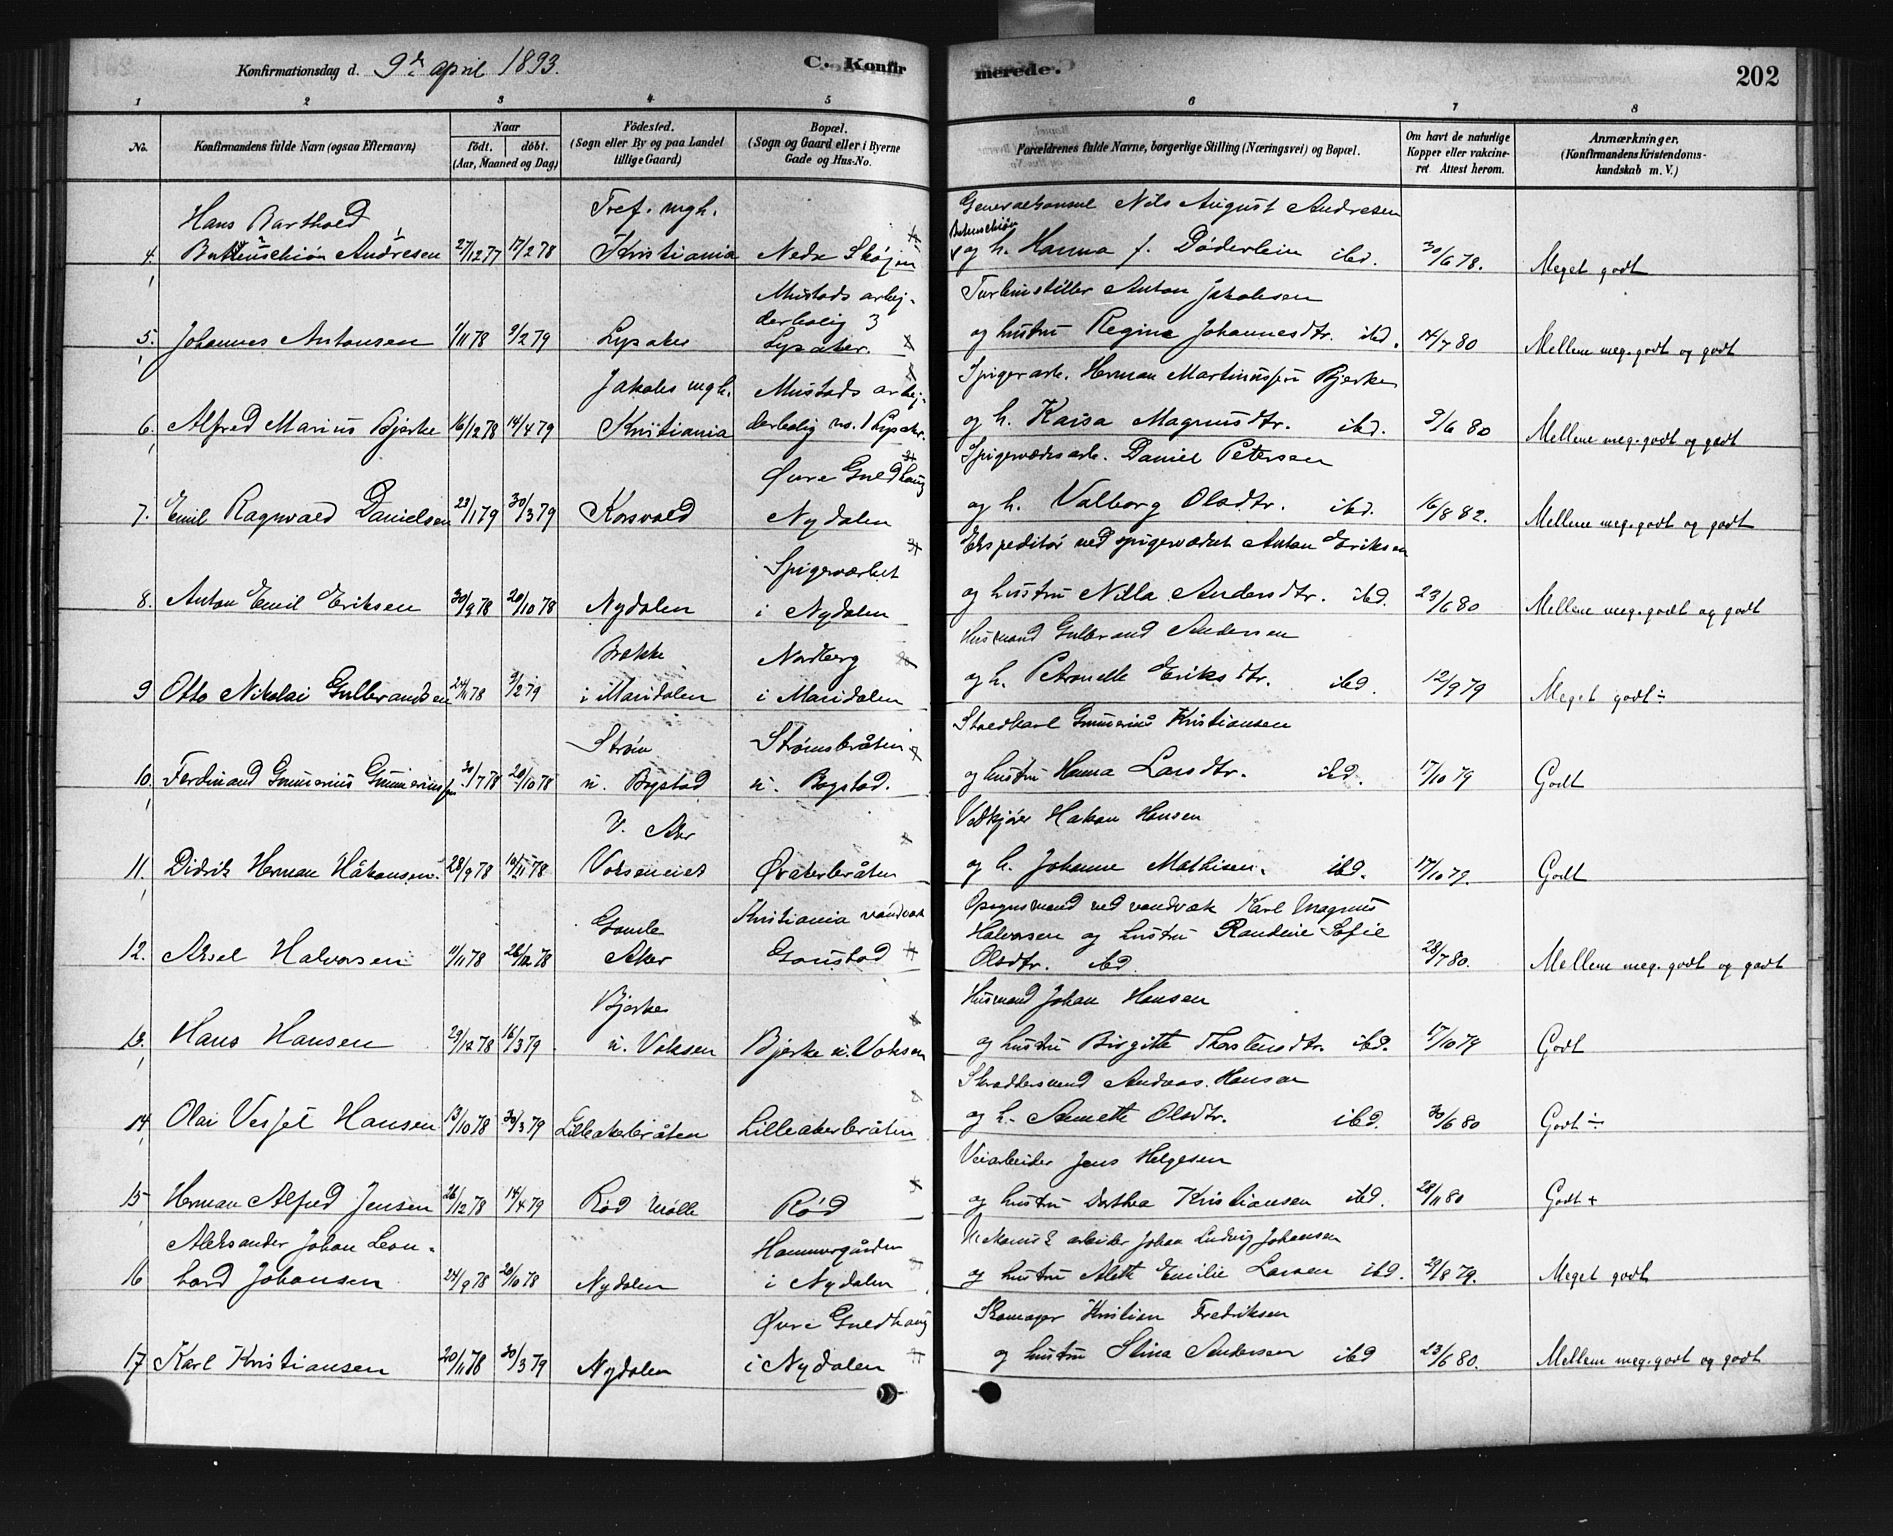 Konfirmationsdag d. 9de april 1893. C. Konfirmerede. 202
1 2 3 4 5 6 7 8
No. Konfirmandens fulde Navn (ogsaa Efternavn) Naar født. døbt. (Aar, Maaned og Dag) Fødested. (Sogn eller By og paa Landet tillige Gaard) Bopæl. (Sogn og Gaard eller i Byerne Gade og Hus-No. Forældrenes fulde Navne, borgerlige Stilling (Næringsvei) og Bopæl. Om havt de naturlige Kopper eller vakcineret Attest herom. Anmærkninger. (Konfirmandens Kristendomskundskab m. V.)
Hans Barthold Tref. mgh. Generalkonsul Nils August Andresen
Butenschiøn
4. Butenschiøn Andresen 27/12 77 17/2 78 Kristiania Nedre Skøjen og h. Hanna f. Døderlein ibd. 30/6 78. Meget godt
Mustads arbej- Turbinstiller Anton Jakobsen
derbolig 3
5. Johannes Antonsen 1/11 78 9/2 79 Lysaker Lysaker. og hustru Regine Johannesdtr. ibd. 14/7 80 Mellem meg. godt og godt
Jakobs mgh. Mustads arbej- Spigerarb. Herman Martinussen Bjerke
6. Alfred Marius Bjerke 16/12 78 14/4 79 Kristiania derbolig no. 1 Lysaker. og h. Kaisa Magnusdtr. ibd. 9/6 80 Mellem meg. godt og godt
Øvre Guldhaug Spigerværksarb. Daniel Petersen
7. Emil Ragnvald Danielsen 23/1 79 30/3 79 Korsvold Nydalen og h. Valborg Olsdtr. ibd. 16/8 82. Mellem meg. godt og godt
Spigerværket Ekspeditør ved spigerværket Anton Eriksen
8. Anton Emil Eriksen 30/9 78 20/10 78 Nydalen i Nydalen og hustru Nilla Andersdtr. ibd. 23/6 80 Mellem meg. godt og godt
Brække Nordberg Husmand Gulbrand Andersen
9 Otto Nikolai Gulbrandsen 24/11 78 9/2 79 i Maridalen i Maridalen og h. Petronelle Eriksdtr. ibd. 12/9 79 Meget godt ÷
Strøm Strømsbråten Staldkarl Gunerius Kristiansen
10. Ferdinand Gunerius Guneriussen 30/7 78 20/10 78 u. Bogstad u. Bogstad. og hustru Hanna Larsdtr. ibd. 17/10 79 Godt
V. Aker Vedkjører Hakon Hansen
11. Didrik Herman Håkonsen. 28/9 78 10/11 78 Vokseneiet Øvaterbråten og h. Johanne Mathisen. ibd. 17/10 79. Godt
Gamle Kristiania vandværk Opsynsmand ved vandværk Karl Magnus
Halvorsen og hustru Randine Sofie
12. Aksel Halvorsen 1/11 78 26/12 78 Aker Gaustad Olsdtr. ibd. 28/7 80. Mellem meg. godt og godt
Bjerke Husmand Johan Hansen
13. Hans Hansen 29/12 78 16/3 79 u. Voksen Bjerke u. Voksen og hustru Birgitte Thorstensdtr. ibd. 17/10 79 Godt
Skræddersvend Andreas Hansen
14. Olai Hansen 13/10 78 30/3 79 Lilleakerbråten Lilleakerbråten og h. Annette Olsdtr. ibd. 30/6 80 Godt ÷
Veiarbeider Jens Helgesen
15 Herman Alfred Jensen 26/12 78 14/4 79 Rød Mølle Rød og hustru Dorthea Kristiansen ibd. 28/11 80 Godt +
Aleksander Johan Leon- Hammergården Mekanisk arbeider Johan Ludvig Johansen
16 hard Johansen 24/9 78 20/10 78 Nydalen i Nydalen og hustru Alette Emilie Larsen ibd. 29/8 79. Meget godt
Øvre Guldhaug Skomager Kristian Fredriksen
17 Karl Kristiansen 20/11 78 30/3 79 Nydalen i Nydalen og hustru Stina Andersen ibd 23/6 80. Mellem meg. godt og godt